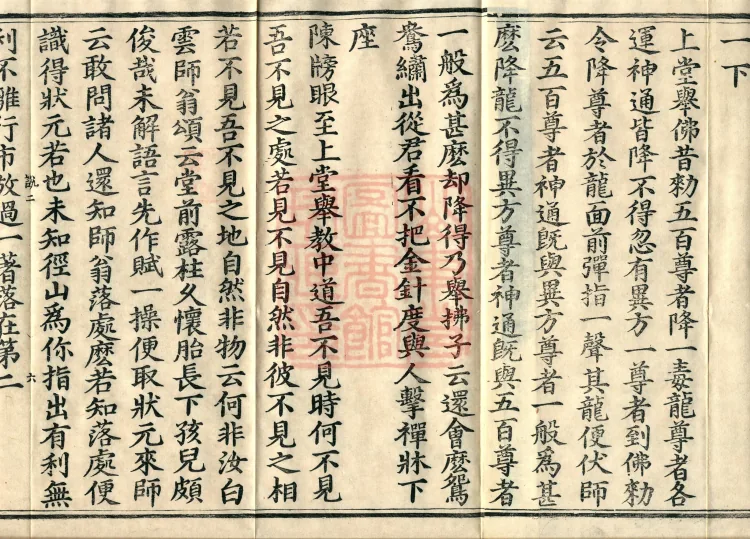 一下
上堂舉佛昔勑五百尊者降一毒龍尊者各
運神通皆降不得忽有異方一尊者到佛勑
令降尊者於龍面前彈指一聲其龍便伏師
云五百尊者神通旣與異方尊者一般爲甚
麽降龍不得異方尊者神通旣與五百尊者
一般爲甚麽却降得乃舉拂子云還會麽鴛
鴦繡出從君看不把金針度與人擊禪牀下
座
陳牓眼至上堂舉教中道吾不見時何不見
吾不見之處若見不見自然非彼不見之相
若不見吾不見之地自然非物云何非汝白
雲師翁頌云堂前露柱久懷胎長下孩兒頗
俊哉未解語言先作賦一操便取狀元來師
云敢問諸人還知師翁落處麽若知落處便
識得狀元若也未知徑山爲你指出有利無
利不離行市放過一著落在第二
説二
六